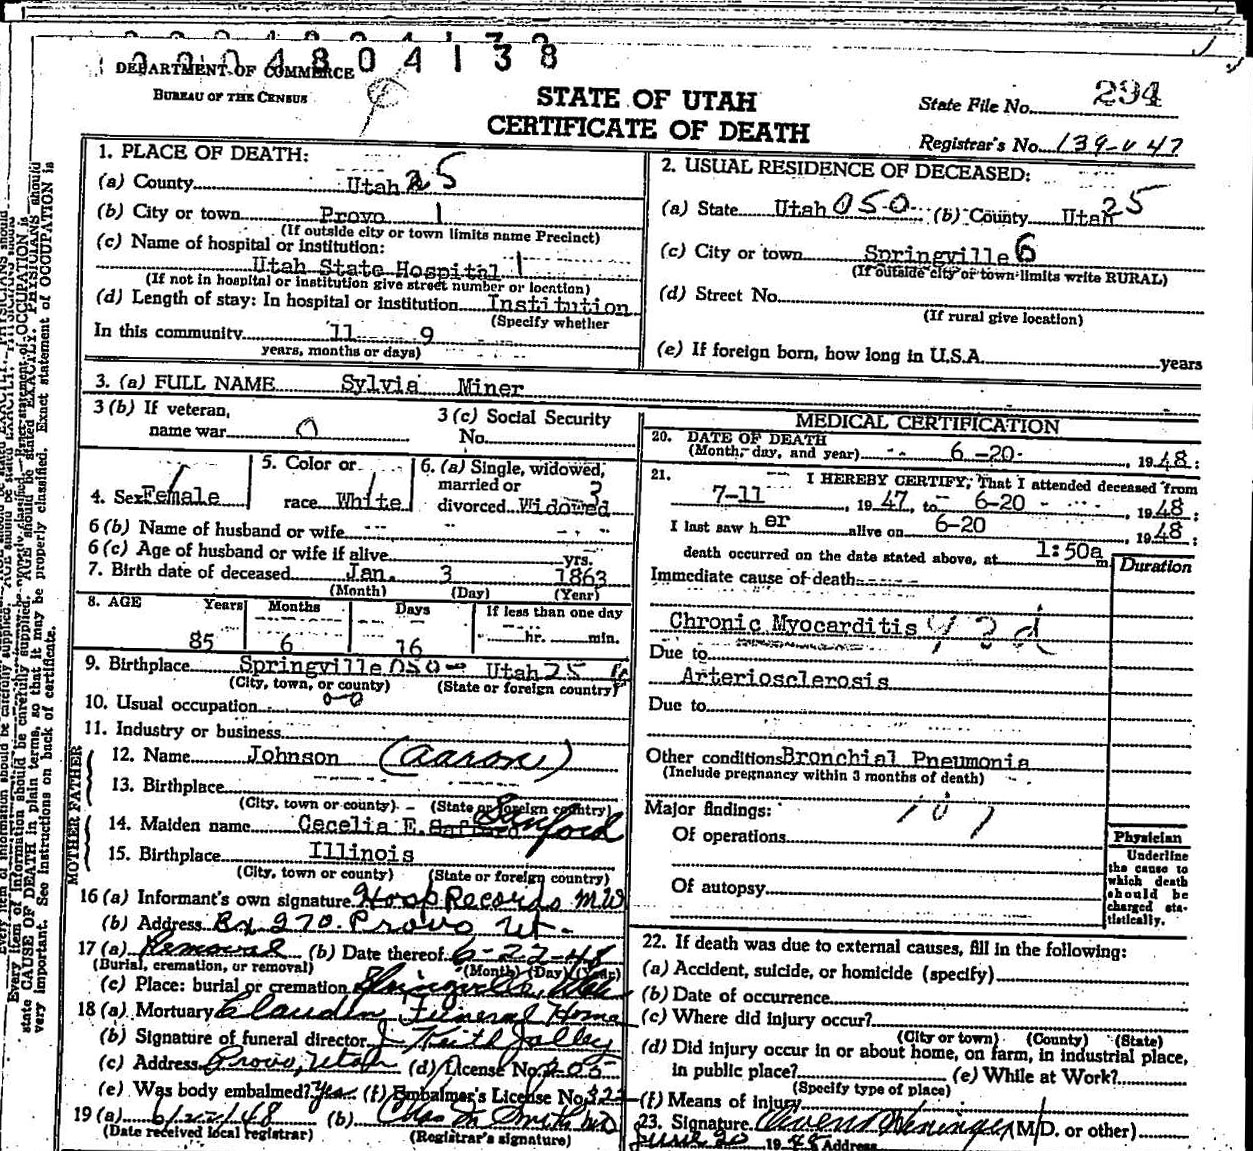 2 2 0 4 8 0 4 1 3 8
DEPARTMENT OF COMMERCE
BUREAU OF THE CENSUS
STATE OF UTAH
CERTIFICATE OF DEATH
State File No. 294
Registrar's No. 139-v 47
1. PLACE OF DEATH:
(a) County Utah 25
(b) City or town Provo 1
(If outside city or town limits name Precinct)
(c) Name of hospital or institution:
Utah State Hospital 1
(If not in hospital or institution give street number or location)
(d) Length of stay: In hospital or institution Institution
(Specify whether
In this community 11 9
years, months or days)
2. USUAL RESIDENCE OF DECEASED:
(a) State Utah 050 (b) County Utah 25
(c) City or town Springville 6
(If outside city or town limits write RURAL)
(d) Street No.
(If rural give location)
(e) If foreign born, how long in U.S.A. years
3. (a) FULL NAME Sylvia Miner
3 (b) If veteran,
name war 0
3 (c) Social Security
No.
4. Sex Female
5. Color or
race White
6. (a) Single, widowed,
married or 3
divorced Widowed
6 (b) Name of husband or wife
6 (c) Age of husband or wife if alive yrs.
7. Birth date of deceased Jan. 3 1863
(Month) (Day) (Year)
8. AGE Years Months Days If less than one day
85 6 16 hr. min.
9. Birthplace Springville 050 Utah 25
(City, town, or county) (State or foreign country)
10. Usual occupation
11. Industry or business
FATHER
12. Name Johnson (Aaron)
13. Birthplace
(City, town or county) (State or foreign country)
MOTHER
14. Maiden name Cecelia E. Sanford
15. Birthplace Illinois
(City, town or county) (State or foreign country)
16 (a) Informant's own signature Hosp Records MW
(b) Address Bx 270. Provo Ut.
17 (a) Removal (b) Date thereof 6-22-48
(Burial, cremation, or removal) (Month) (Day) (Year)
(c) Place: burial or cremation Springville, Utah
18 (a) Mortuary Claudin Funeral Home
(b) Signature of funeral director J. Keith Jolley
(c) Address Provo, Utah (d) License No. 205
(e) Was body embalmed? Yes (f) Embalmer's License No. 322
19 (a) 6/22/48 (b) Chas M Smith MD
(Date received local registrar) (Registrar's signature)
MEDICAL CERTIFICATION
20. DATE OF DEATH
(Month, day, and year) 6-20- , 1948:
21. I HEREBY CERTIFY, That I attended deceased from
7-11 , 1947, to 6-20 , 1948:
I last saw her alive on 6-20 , 1948:
death occurred on the date stated above, at 1:50a m
Duration
Immediate cause of death
Chronic Myocarditis 93d
Due to
Arteriosclerosis
Due to
Other conditions Bronchial Pneumonia
(Include pregnancy within 3 months of death)
Major findings: 107
Of operations
Of autopsy
Physician
Underline
the cause to
which death
should be
charged sta-
tistically.
22. If death was due to external causes, fill in the following:
(a) Accident, suicide, or homicide (specify)
(b) Date of occurrence
(c) Where did injury occur?
(City or town) (County) (State)
(d) Did injury occur in or about home, on farm, in industrial place,
in public place? (e) While at Work?
(Specify type of place)
(f) Means of injury
23. Signature Owen Heninger (M.D. or other)
June 20 1948 Address
state CAUSE OF DEATH in plain terms, so that it may be properly classified. Exact statement of OCCUPATION is
very important. See instructions on back of certificate.